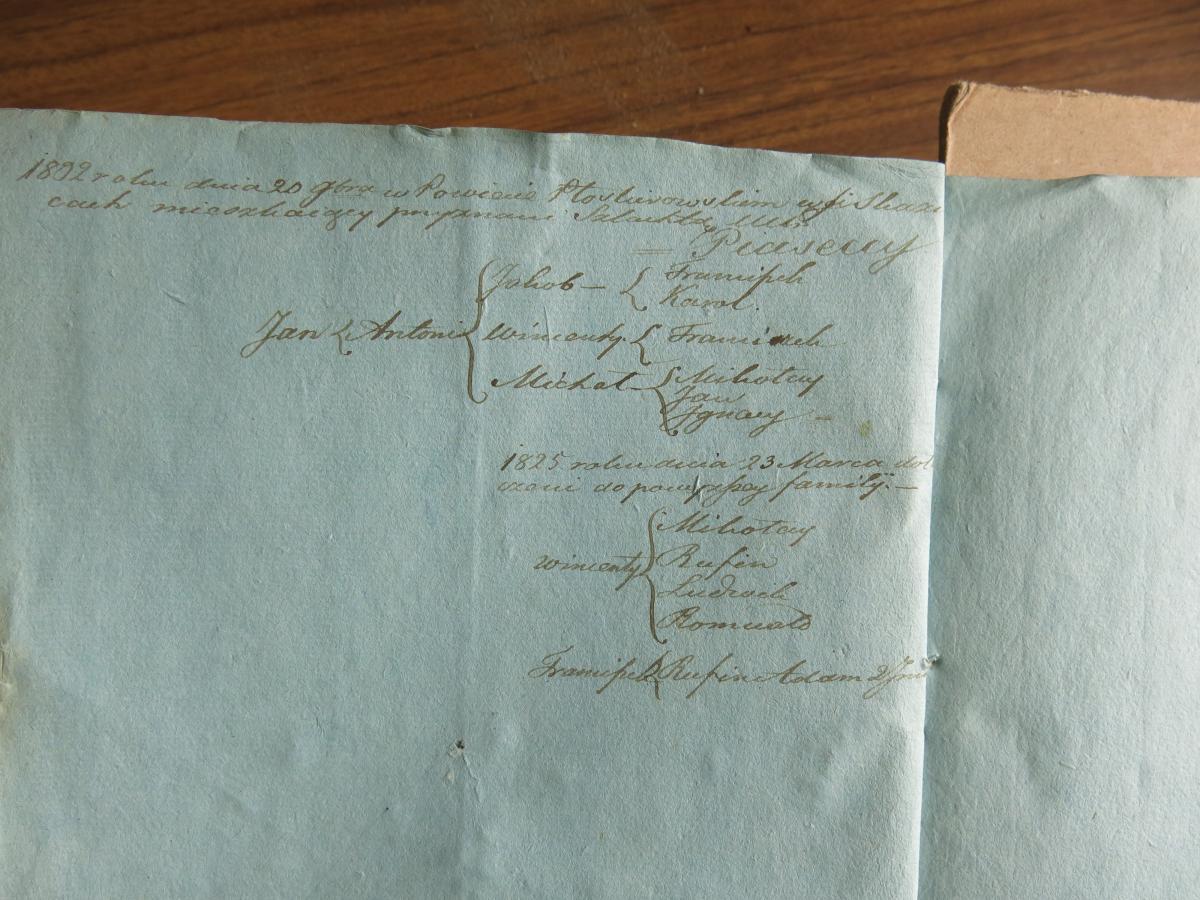 1802 roku dnia 20 9bra w Powiecie Płoskirowskim w
cach mieszkaiący przyznani Szlachtą
= Piaseccy
Jakob — { Franciszek
Karol.
Jan { Antoni { Wincenty. { Franciszek
Michał { Mikołay
Jan
Ignacy —
1825 roku dnia 23 Marca doł
czeni do powyższey familij. —
Mikołay
Wincenty { Rufin
Ludwik
Romuald
Franciszek { Rufin Adam 2